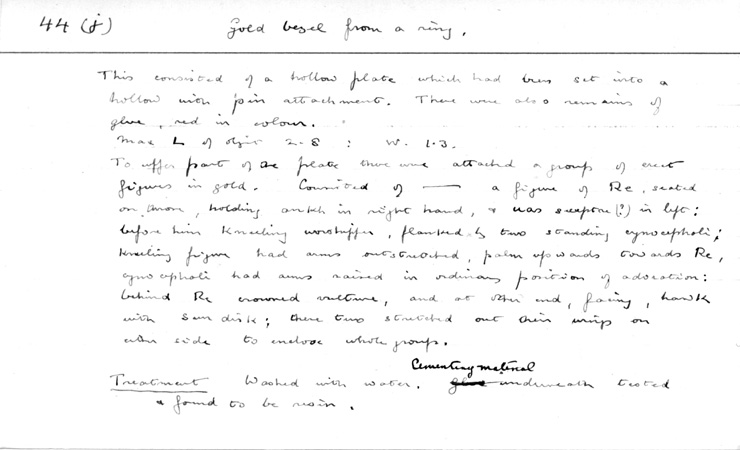 44 (j) Gold bezel from a ring.
This consisted of a hollow plate which had been set into a
hollow with pin attachment. There were also remains of
glue, red in colour.
Max L of object 2.8 : W. 1.3.
To upper part of the plate there were attached a group of erect
figures in gold. Consisted of — a figure of Re, seated
on throne, holding ankh in right hand, & was sceptre (?) in left:
before him kneeling worshipper, flanked by two standing cynocephali;
kneeling figure had arms outstretched, palm upwards towards Re,
cynocephali had arms raised in ordinary position of adoration:
behind Re crowned vulture, and at other end, facing, hawk
with sun disk; these two stretched out their wings on
either side to enclose whole group.
Treatment Washed with water. Cementing material underneath tested
& found to be resin.